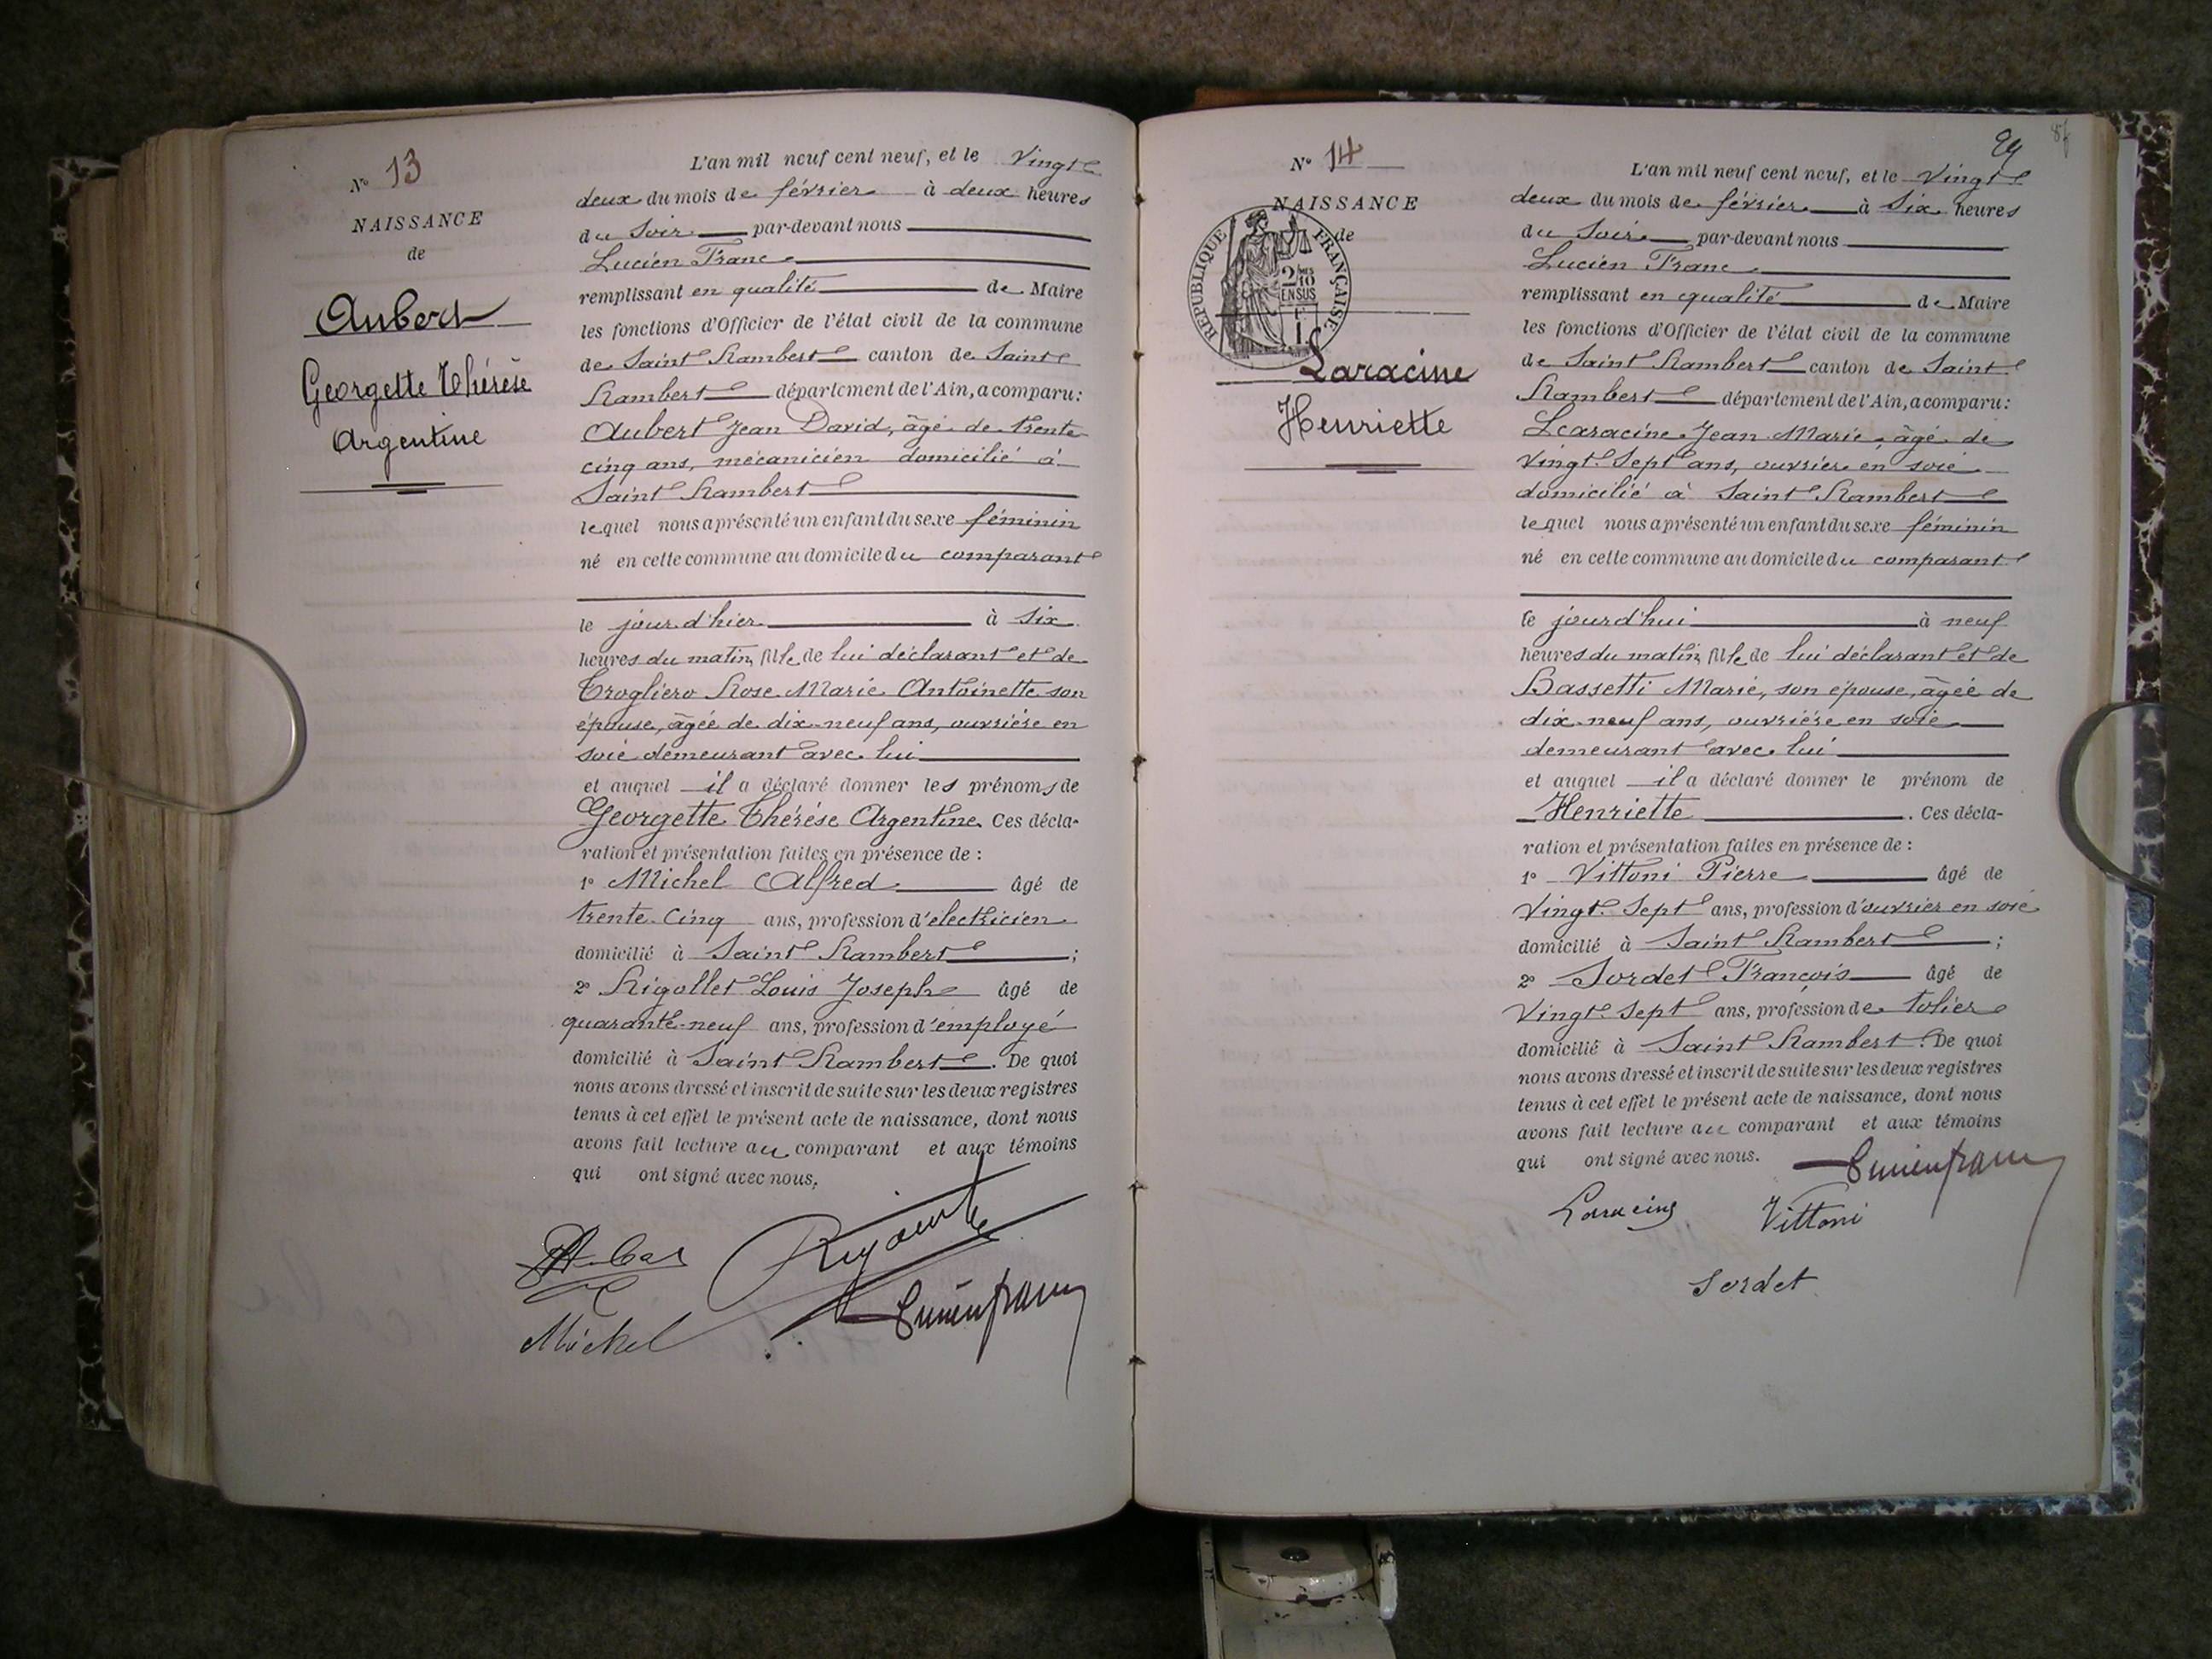 Nº 13
NAISSANCE
de
Aubert
Georgette Thérèse
Argentine
L'an mil neuf cent neuf, et le Vingt
deux du mois de février à deux heures
du Soir par-devant nous
Lucien Franc
remplissant en qualité de Maire
les fonctions d'Officier de l'état civil de la commune
de Saint Rambert canton de Saint
Rambert département de l'Ain, a comparu:
Aubert Jean David, âgé de trente
cinq ans, mécanicien domicilié à
Saint Rambert
lequel nous a présenté un enfant du sexe féminin
né en cette commune au domicile du comparant
le jour d'hier à Six
heures du matin, fille de lui déclarant et de
Trogliero Rose Marie Antoinette son
épouse, âgée de dix-neuf ans, ouvrière en
soie demeurant avec lui
et auquel il a déclaré donner les prénoms de
Georgette Thérèse Argentine. Ces décla-
ration et présentation faites en présence de :
1º Michel Alfred âgé de
trente-cinq ans, profession d'électricien
domicilié à Saint Rambert ;
2º Rigollet Louis Joseph âgé de
quarante-neuf ans, profession d'employé
domicilié à Saint Rambert. De quoi
nous avons dressé et inscrit de suite sur les deux registres
tenus à cet effet le présent acte de naissance, dont nous
avons fait lecture au comparant et aux témoins
qui ont signé avec nous.
Michel
Lucien franc
29
Nº 14
NAISSANCE
de
RÉPUBLIQUE FRANÇAISE.
2/10
EN SUS
Laracine
Henriette
L'an mil neuf cent neuf, et le Vingt
deux du mois de février à Six heures
du Soir par-devant nous
Lucien Franc
remplissant en qualité de Maire
les fonctions d'Officier de l'état civil de la commune
de Saint Rambert canton de Saint
Rambert département de l'Ain, a comparu:
Laracine Jean Marie, âgé de
Vingt-Sept ans, ouvrier en soie
domicilié à Saint Rambert
lequel nous a présenté un enfant du sexe féminin
né en cette commune au domicile du comparant
le jourd'hui à neuf
heures du matin, fille de lui déclarant et de
Bassetti Marie, son épouse, âgée de
dix-neuf ans, ouvrière en soie
demeurant avec lui
et auquel il a déclaré donner le prénom de
Henriette. Ces décla-
ration et présentation faites en présence de :
1º Vittoni Pierre âgé de
Vingt-Sept ans, profession d'ouvrier en soie
domicilié à Saint Rambert ;
2º Sordet François âgé de
Vingt-Sept ans, profession de tolier
domicilié à Saint Rambert. De quoi
nous avons dressé et inscrit de suite sur les deux registres
tenus à cet effet le présent acte de naissance, dont nous
avons fait lecture au comparant et aux témoins
qui ont signé avec nous.
Lucien franc
Laracine Vittoni
Sordet